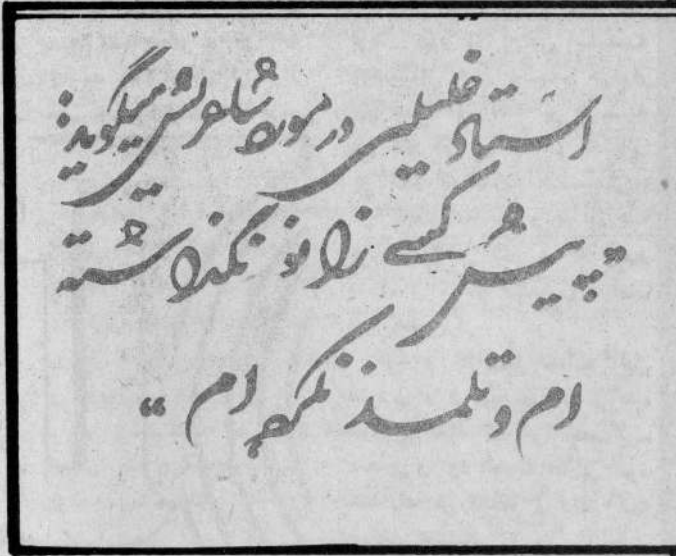 استاد خلیلی در مورد شاعریش میگوید:
"پیش کسی زانو نگذاشته
ام و تلمذ نکرده ام"